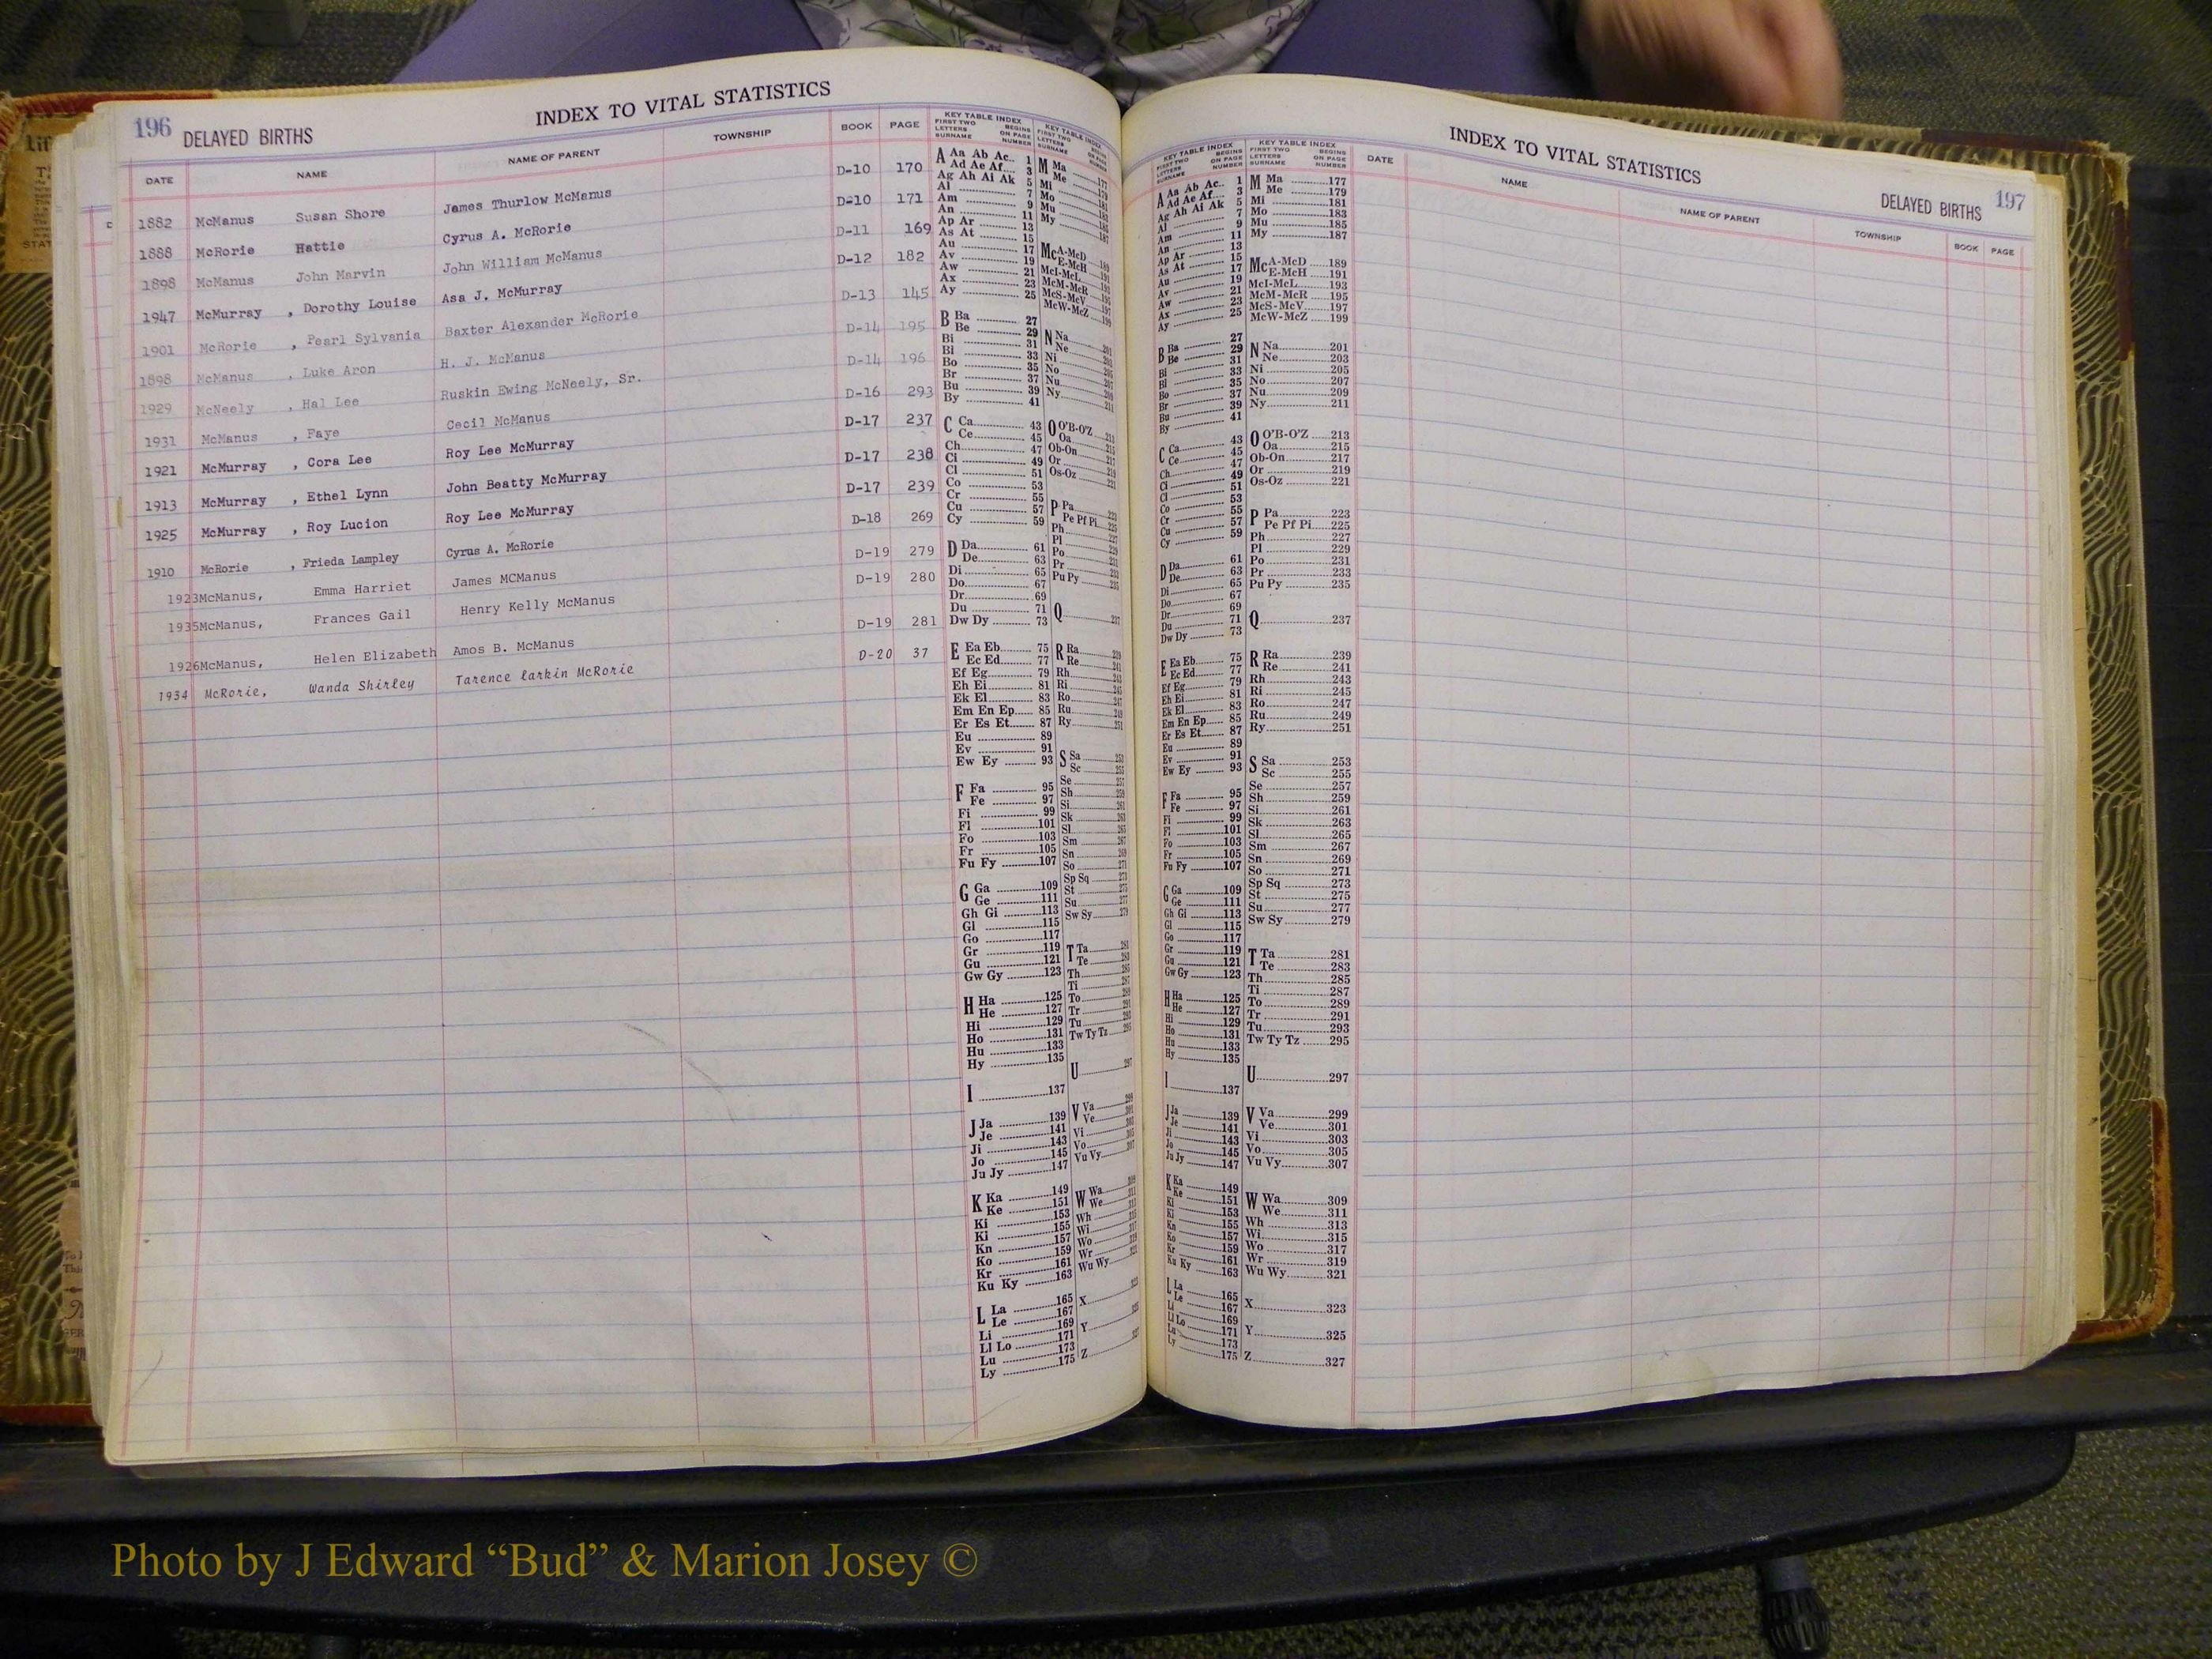 196 DELAYED BIRTHS
INDEX TO VITAL STATISTICS
DATE NAME NAME OF PARENT TOWNSHIP BOOK PAGE
1882 McManus Susan Shore James Thurlow McManus D-10 170
1888 McRorie Hattie Cyrus A. McRorie D-10 171
1898 McManus John Marvin John William McManus D-11 169
1947 McMurray , Dorothy Louise Asa J. McMurray D-12 182
1901 McRorie , Pearl Sylvania Baxter Alexander McRorie D-13 145
1898 McManus , Luke Aron H. J. McManus D-14 195
1929 McNeely , Hal Lee Ruskin Ewing McNeely, Sr. D-14 196
1931 McManus , Faye Cecil McManus D-16 293
1921 McMurray , Cora Lee Roy Lee McMurray D-17 237
1913 McMurray , Ethel Lynn John Beatty McMurray D-17 238
1925 McMurray , Roy Lucion Roy Lee McMurray D-17 239
1910 McRorie , Frieda Lampley Cyrus A. McRorie D-18 269
1923 McManus, Emma Harriet James MCManus D-19 279
1935 McManus, Frances Gail Henry Kelly McManus D-19 280
1926 McManus, Helen Elizabeth Amos B. McManus D-19 281
1934 McRorie, Wanda Shirley Tarence Larkin McRorie D-20 37
KEY TABLE INDEX
FIRST TWO LETTERS SURNAME BEGINS ON PAGE NUMBER
A Aa Ab Ac.. 1
Ad Ae Af.... 3
Ag Ah Ai Ak 5
Al 7
Am 9
An 11
Ap Ar 13
As At 15
Au 17
Av 19
Aw 21
Ax 23
Ay 25
B Ba 27
Be 29
Bi 31
Bl 33
Bo 35
Br 37
Bu 39
By 41
C Ca 43
Ce 45
Ch 47
Ci 49
Cl 51
Co 53
Cr 55
Cu 57
Cy 59
D Da 61
De 63
Di 65
Do 67
Dr 69
Du 71
Dw Dy 73
E Ea Eb 75
Ec Ed 77
Ef Eg 79
Eh Ei 81
Ek El 83
Em En Ep 85
Er Es Et 87
Eu 89
Ev 91
Ew Ey 93
F Fa 95
Fe 97
Fi 99
Fl 101
Fo 103
Fr 105
Fu Fy 107
G Ga 109
Ge 111
Gh Gi 113
Gl 115
Go 117
Gr 119
Gu 121
Gw Gy 123
H Ha 125
He 127
Hi 129
Ho 131
Hu 133
Hy 135
I 137
J Ja 139
Je 141
Ji 143
Jo 145
Ju Jy 147
K Ka 149
Ke 151
Ki 153
Ki 155
Kn 157
Ko 159
Kr 161
Ku Ky 163
L La 165
Le 167
Li 169
Ll Lo 171
Lu 173
Ly 175
INDEX TO VITAL STATISTICS
DELAYED BIRTHS 197
DATE NAME NAME OF PARENT TOWNSHIP BOOK PAGE
KEY TABLE INDEX
FIRST TWO LETTERS SURNAME BEGINS ON PAGE NUMBER
M Ma 177
Me 179
Mi 181
Mo 183
Mu 185
My 187
Mc A-McD 189
E-McH 191
McI-McL 193
McM-McR 195
McS-McV 197
McW-McZ 199
N Na 201
Ne 203
Ni 205
No 207
Nu 209
Ny 211
O O'B-O'Z 213
Oa 215
Ob-On 217
Or 219
Os-Oz 221
P Pa 223
Pe Pf Pi 225
Ph 227
Pl 229
Po 231
Pr 233
Pu Py 235
Q 237
R Ra 239
Re 241
Rh 243
Ri 245
Ro 247
Ru 249
Ry 251
S Sa 253
Sc 255
Se 257
Sh 259
Si 261
Sk 263
Sl 265
Sm 267
Sn 269
So 271
Sp Sq 273
St 275
Su 277
Sw Sy 279
T Ta 281
Te 283
Th 285
Ti 287
To 289
Tr 291
Tu 293
Tw Ty Tz 295
U 297
V Va 299
Ve 301
Vi 303
Vo 305
Vu Vy 307
W Wa 309
We 311
Wh 313
Wi 315
Wo 317
Wr 319
Wu Wy 321
X 323
Y 325
Z 327
Photo by J Edward “Bud” & Marion Josey ©